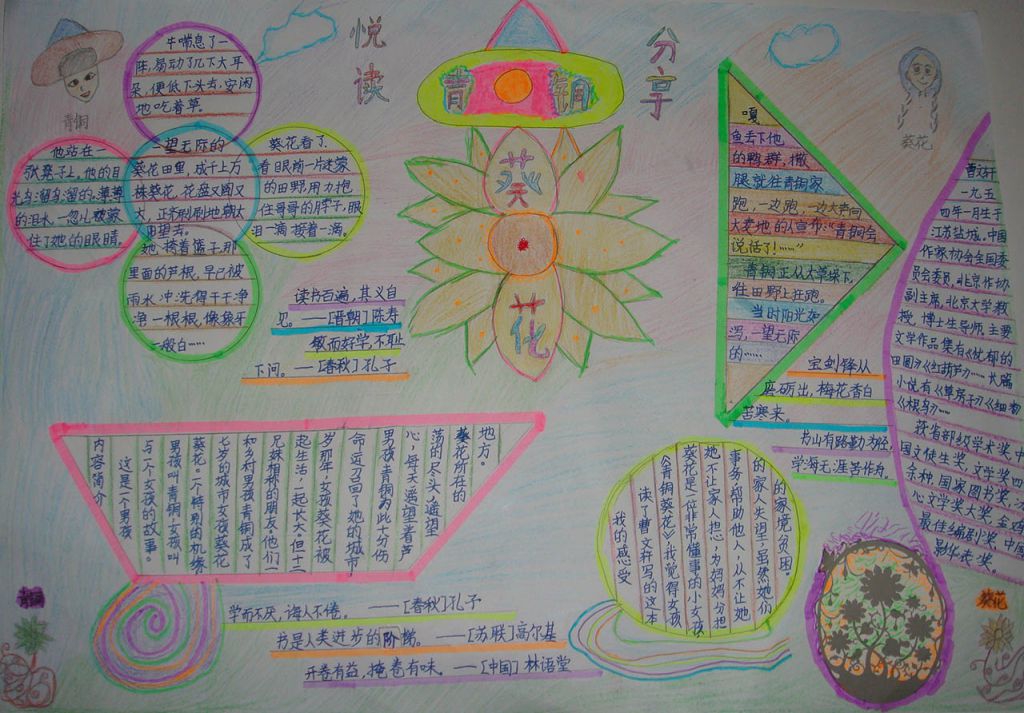 悦读
分享
青铜
葵花
青铜
葵花
牛喘息了一
阵,扇动了几下大耳
朵,便低下头去,安闲
地吃着草。
他站在一
张凳子上。他的目
光乌溜乌溜的,薄薄
的泪水,一忽儿蒙
住了她的眼睛。
一望无际的
葵花田里,成千上万
株葵花,花盘又阔又
大,正齐刷刷地朝太
阳望去。
葵花看了
看眼前一片迷蒙
的田野,用力抱
住哥哥的脖子,眼
泪一滴接着一滴。
她挎着篮子,那
里面的芦根,早已被
雨水冲洗得干干净
净,一根根,像象牙
一般白……
读书百遍,其义自
见。——[晋朝]陈寿
敏而好学,不耻
下问。——[春秋]孔子
嘎
鱼丢下他
的鸭群,撒
腿就往青铜家
跑,一边跑,一边大声向
大麦地的人宣布:“青铜会
说话了!……”
青铜正从大草垛下,
往田野上狂跑。
当时阳光如
泻,一望无际
的……
宝剑锋从
磨砺出,梅花香自
苦寒来。
书山有路勤为径,
学海无涯苦作舟。
曹文轩
一九五
四年一月生于
江苏盐城。中国
作家协会全国委
员会委员,北京作协
副主席,北京大学教
授、博士生导师。主要
文学作品集有《忧郁的
田园》《红葫芦》……长篇
小说有《草房子》《细米》
《根鸟》……
获省部级学术奖,中
国文优生奖,文学奖四
余种,国家图书奖、
心文学奖大奖,金鸡
最佳编剧奖、中国
影华表奖。
内容简介
这是一个男孩
与一个女孩的故事。
男孩叫青铜,女孩叫
葵花。一个特别的机缘,
七岁的城市女孩葵花
和乡村男孩青铜成了
兄妹相称的朋友,他们一
起生活,一起长大。但十二
岁那年,女孩葵花被
命运召回了她的城市,
男孩青铜为此十分伤
心,每天遥望着芦
荡的尽头,遥望
葵花所在的
地方。
我的感受
读了曹文轩写的这本
《青铜葵花》,我觉得女孩
葵花是一位非常懂事的小女孩,
她不让家人担心,为妈妈分担
事务,帮助他人,从不让她
的家人失望;虽然她们
的家境贫困。
学而不厌,诲人不倦。——[春秋]孔子
书是人类进步的阶梯。——[苏联]高尔基
开卷有益,掩卷有味。——[中国]林语堂
青铜
葵花